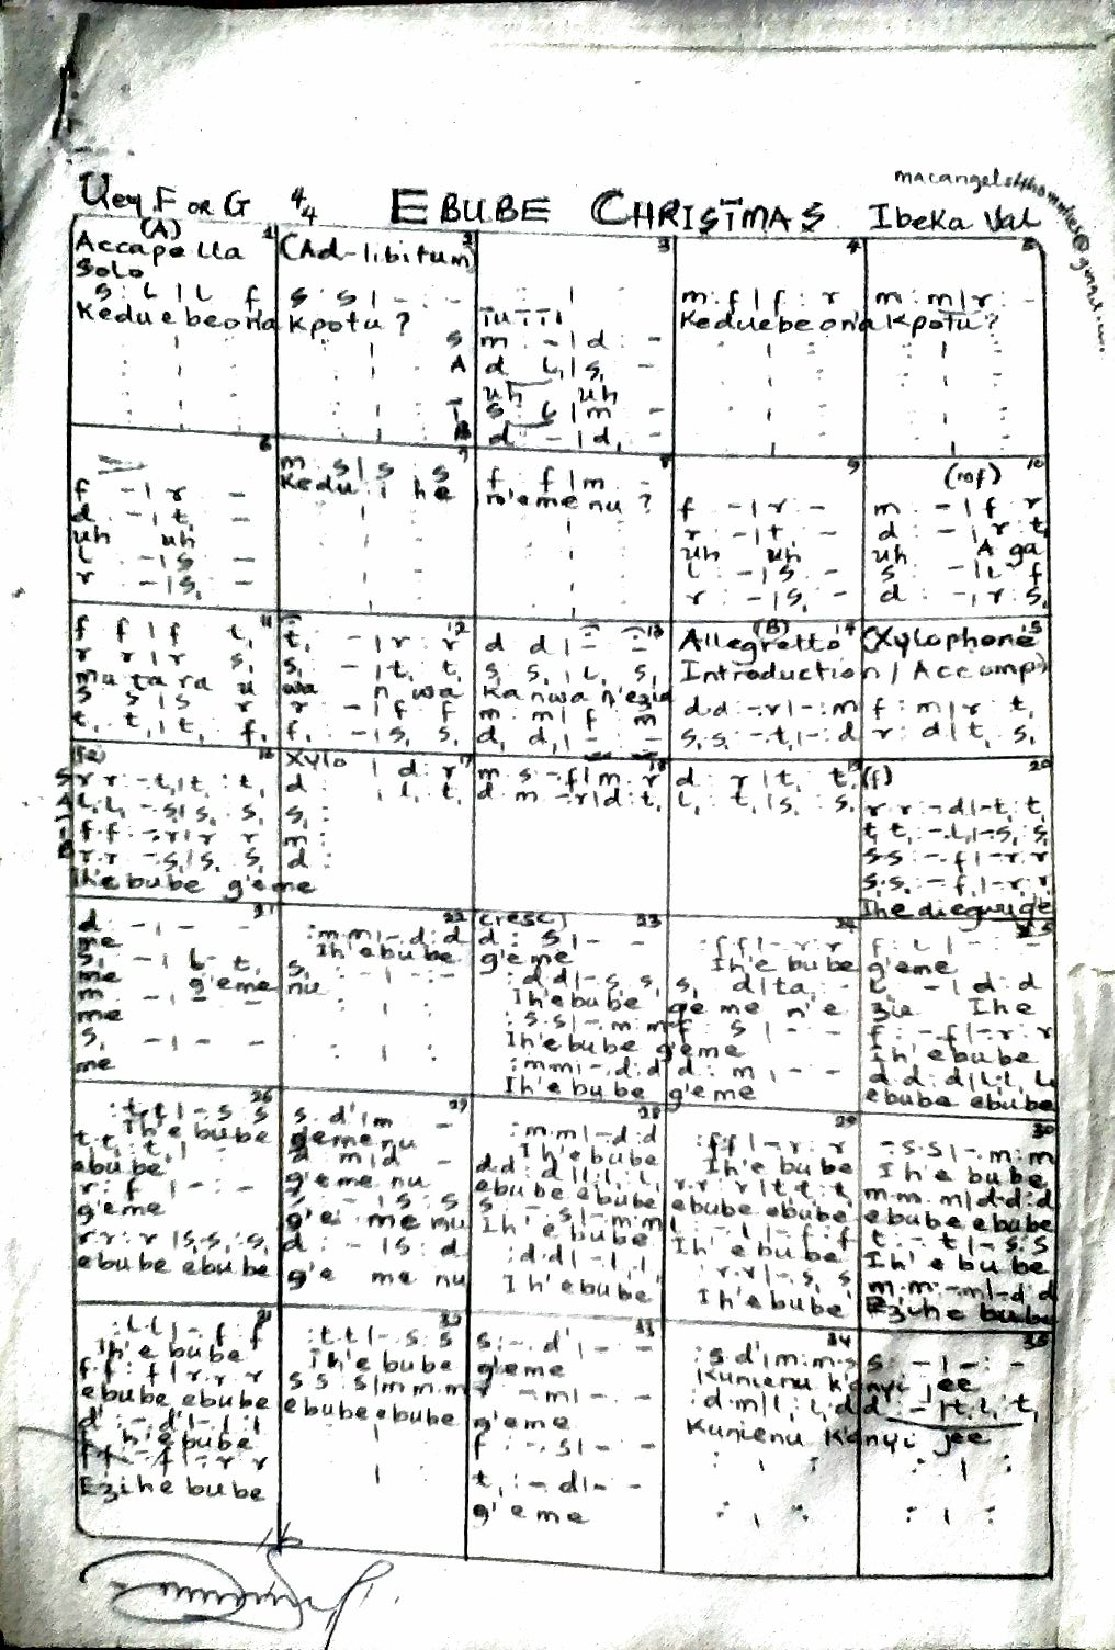 Key F or G 4/4 EBUBE CHRISTMAS Ibeka Val
(A) 1 2 3 4 5
Accapella (Ad-libitum)
Solo
s : l | l : f s : s | - : - m : f | f : r m : m | r : -
Keduebeona kpotu? Keduebeona kpotu?
TUTTI
S m : - | d : -
A d : l, | s, : -
uh uh
T s : l | m : -
B d : - | d, : -
6 7 8 9 10
f : - | r : -
d : - | t, : -
uh uh
l : - | s : -
r : - | s, : -
m : s | s : s
Kedu ihe
f : f | m : -
n'eme nu?
f : - | r : -
r : - | t, : -
uh uh
l : - | s : -
r : - | s, : -
(mf)
m : - | f : r
d : - | r : t,
uh A ga
s : - | l : f
d : - | r : s,
11 12 13 14 15
f f | f t,
r r | r s,
mu ta ra u
s s | s r
t, t, | t, f,
t, : - | r : r
s, : - | t, : t,
wa n'wa
r : - | f : f
f, : - | s, : s,
d d | - : -
s, s, | l, s,
ka nwa n'ezia
m : m | f : m
d, d, | - : -
(B)
Allegretto (Xylophone
Introduction / Accomp)
d d : - r | - : m f : m | r : t,
s, s, : - t, | - : d r : d | t, : s,
16 17 18 19 20
S r r : - t, | t, : t,
A l, l, : - s, | s, : s,
T f f : - r | r r
B r r : - s, | s, : s,
Ih'ebube g'eme
Xylo
d : | d : r
: | l, : t,
s, :
m :
d :
m s : - f | m : r
d m : - r | d : t,
d : r | t, : t,
l, : t, | s, : s,
(f)
r r : - d | - t, t,
t, t, : - l, | - s, s,
s s : - f | - r r
s, s, : - f, | - r, r,
Ihe diegwuige
21 22 23 24 25
d : - | - : -
me
s, : - | l, - t,
me g'eme
m : - | - : -
me
s, : - | - : -
me
: m m | - d : d
Ih'ebube
s, : - | - : -
nu
(cresc)
d : s | - : -
g'eme
: d d | - s, s,
Ih'ebube
: s s | - m m
Ih'ebube
: m m | - d : d
Ih'ebube
: f f | - r : r
Ih'ebube
s, d | ta, : -
geme n'e
f : s | - : -
g'eme
d : m | - : -
g'eme
f : l | - : -
g'eme
l, : - | d : d
zie Ihe
f : - f | - r : r
Ih'ebube
d d : d | l, l, l,
ebube ebube
26 27 28 29 30
: t t | - s s
Ih'ebube
t, t, : t, |
ebube
r : f | - : -
g'eme
r r : r | s, s, : s,
ebube ebube
s : d' | m -
gemenu
d m | d -
g'eme nu
- | s : s
g'e me nu
d : - | s : d
g'e me nu
: m m | - d : d
Ih'ebube
d d : d | l, l, : l,
ebube ebube
s : - s | - m m
Ih'ebube
: d d | - l, l,
Ih'ebube
: f f | - r : r
Ih'ebube
r r : r | t, t, : t,
ebube ebube
l : - l | - f : f
Ih'ebube
: r r | - s, s,
Ih'ebube
- s s | - m : m
Ih'ebube
m m : m | d d : d
ebube ebube
t : - t | - s : s
Ih'ebube
m m : - m | - d d
Ezihe bube
31 32 33 34 35
: l l | - f f
Ih'ebube
f f : f | r r r
ebube ebube
d' : - d' | - l : l
h'ebube
f f - f | - r r
Ezihe bube
: t t | - s s
Ih'ebube
s s : s | m m m
ebube ebube
s : - d' | - -
g'eme
- m | - : -
g'eme
f : - s | - : -
t, : - d | - -
g'eme
: s d' | m : m s s : - | - : -
Kunienu k'anyi jee
: d m | l, : l, d d : - | t, l, t,
Kunienu k'anyi jee